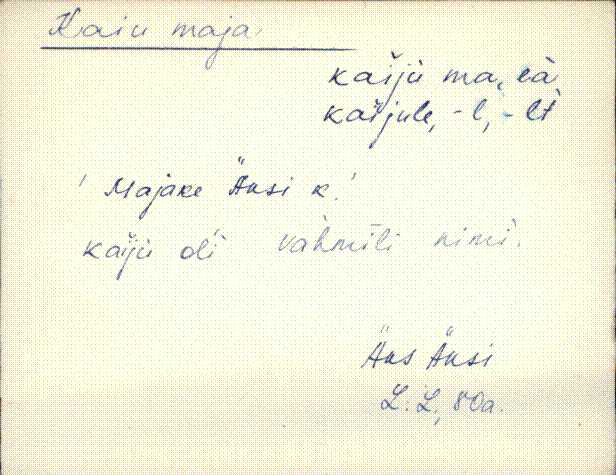 Kaiu maja
kaĭjù ma, ɛà
kaĭjule, -l, -lt
'Majake Äksi k.'
kaĭju oĺi vähmili nimi.
Äks Äksi
L. L, 80a.